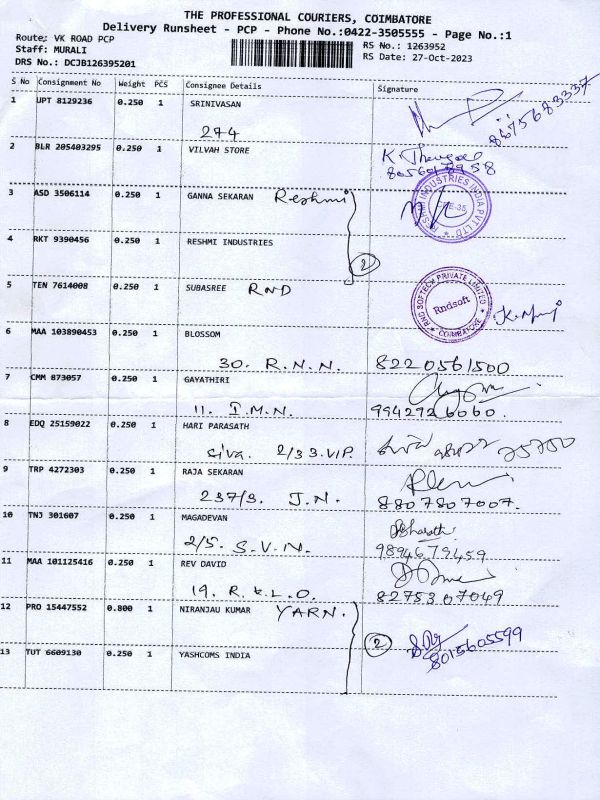 THE PROFESSIONAL COURIERS, COIMBATORE
Delivery Runsheet - PCP - Phone No.:0422-3505555 - Page No.:1
Route: VK ROAD PCP
RS No.: 1263952
Staff: MURALI
RS Date: 27-Oct-2023
DRS No.: DCJB126395201
S No Consignment No Weight PCS Consignee Details Signature
1 UPT 8129236 0.250 1 SRINIVASAN
274
2 BLR 205403295 0.250 1 VILVAH STORE
3 ASD 3506114 0.250 1 GANNA SEKARAN Reshmi
RESHMI INDUSTRIES INDIA PVT LTD
4 RKT 9390456 0.250 1 RESHMI INDUSTRIES
2
5 TEN 7614008 0.250 1 SUBASREE RND
RND SOFTECH PRIVATE LIMITED
Rndsoft
COIMBATORE
6 MAA 103890453 0.250 1 BLOSSOM
30. R.N.N. 8220561500
7 CMM 873057 0.250 1 GAYATHIRI
11. I.M.N. 9942926060.
8 EDQ 25159022 0.250 1 HARI PARASATH
Siva. 2/33.V.P.
9 TRP 4272303 0.250 1 RAJA SEKARAN
237/3. J.N. 8807807007.
10 TNJ 301607 0.250 1 MAGADEVAN
Bharath
2/5. S.V.N. 9894679459
11 MAA 101125416 0.250 1 REV DAVID
19. R.K.L.O. 8275307049
12 PRO 15447552 0.800 1 NIRANJAU KUMAR YARN.
2 8015605599
13 TUT 6609130 0.250 1 YASHCOMS INDIA